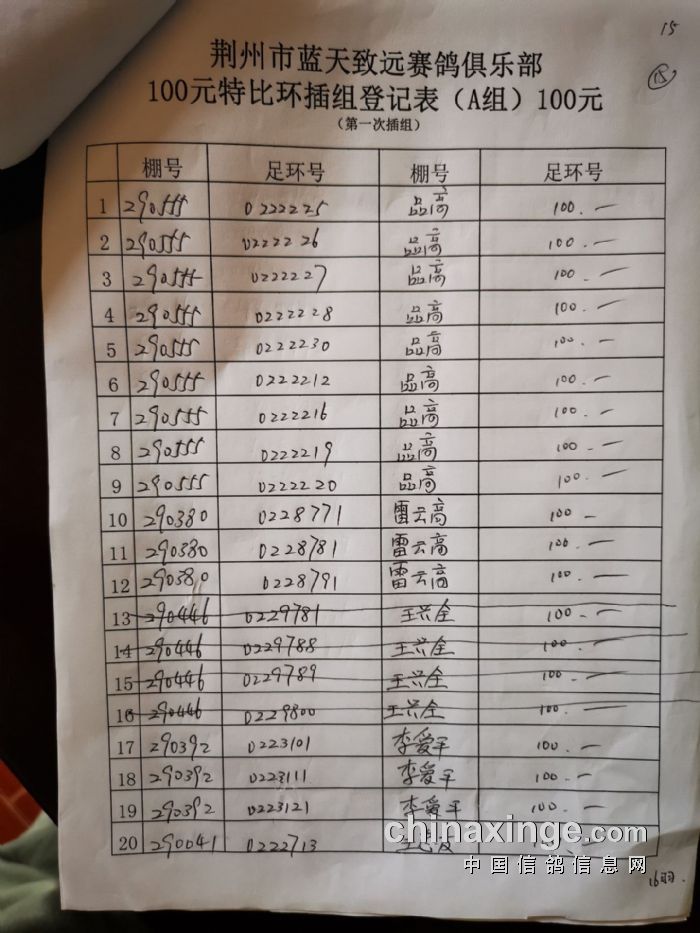 15
15
荆州市蓝天致远赛鸽俱乐部
100元特比环插组登记表（A组）100元
（第一次插组）
棚号 足环号 棚号 足环号
1 290555 0222225 品高 100.一
2 290555 0222226 品高 100.一
3 290555 0222227 品高 100.一
4 290555 0222228 品高 100.一
5 290555 0222230 品高 100.一
6 290555 0222212 品高 100.一
7 290555 0222216 品高 100.一
8 290555 0222219 品高 100.一
9 290555 0222220 品高 100.一
10 290380 0228771 雷云高 100 一
11 290380 0228781 雷云高 100.一
12 290380 0228791 雷云高 100.一
13 290446 0229781 王兴全 100.一
14 290446 0229788 王兴全 100.一
15 290446 0229789 王兴全 100.一
16 290446 0229800 王兴全 100.一
17 290392 0223101 李爱平 100.一
18 290392 0223111 李爱平 100.一
19 290392 0223121 李爱平 100.一
20 290041 0222713
chinaxinge.com
中国信鸽信息网
16羽.